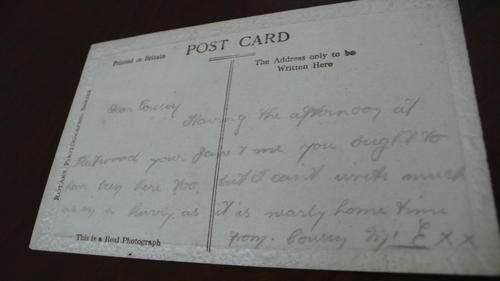 POST CARD
Printed in Britain
The Address only to be
Written Here
ROTARY PHOTOGRAPHIC SERIES
Dear
Having the afternoon at
Fleetwood your & me you ought to
have been here too, but I cant write much
as in a hurry as it is nearly home time
from E x x
This is a Real Photograph